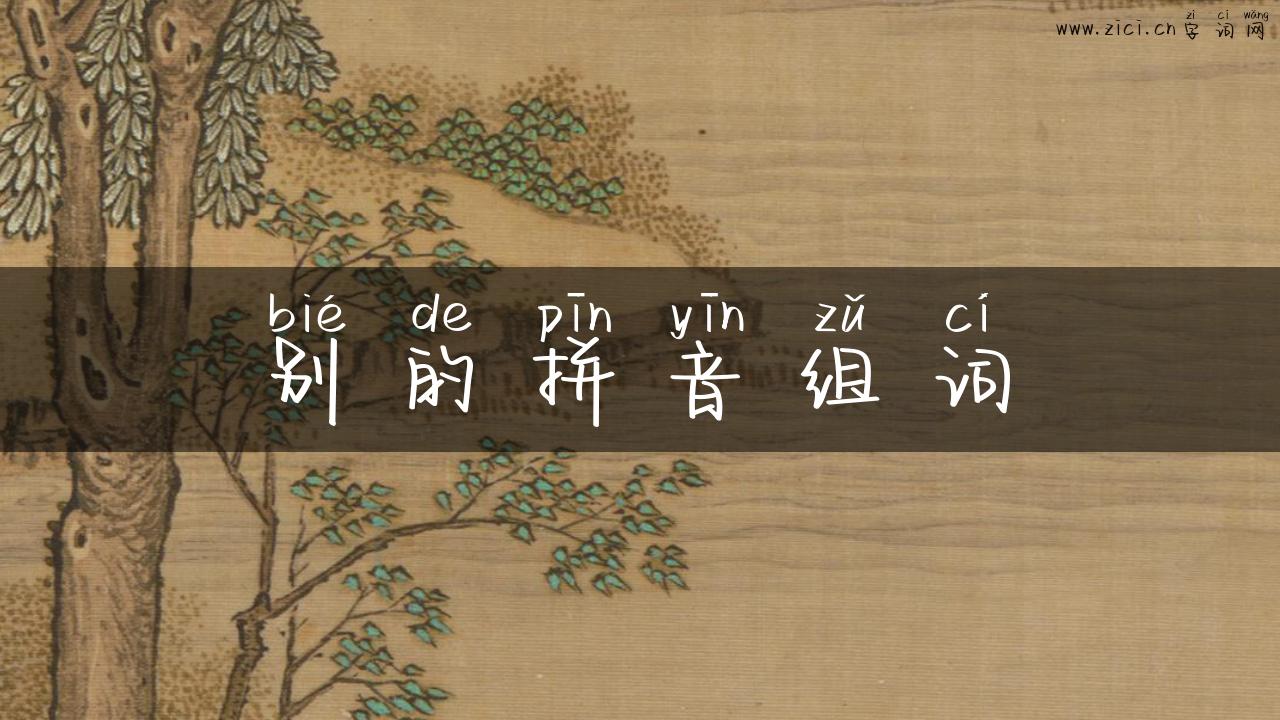 zì cí wǎng
www.zici.cn 字 词 网
bié de pīn yīn zǔ cí
别 的 拼 音 组 词